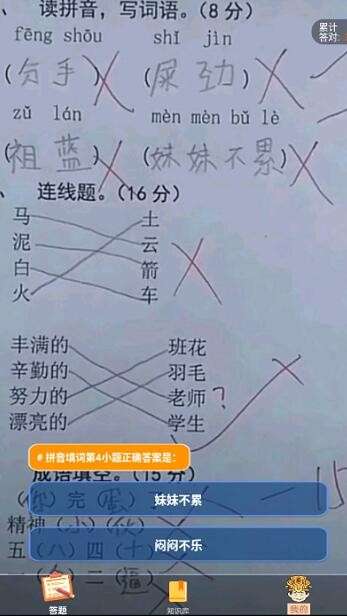 读拼音，写词语。（8分）
累计
答对:
fēng shōu shǐ jìn
（分手）（屎劲）
zǔ lán mèn mèn bù lè
（祖蓝）（妹妹不累）
连线题。（16分）
马 土
泥 云
白 箭
火 车
丰满的 班花
辛勤的 羽毛
努力的 老师？
漂亮的 学生
# 拼音填词第4小题正确答案是:
成语填空。（15分）
妹妹不累
完（蛋）
一15
精神（小）（伙）
闷闷不乐
五（八）四（十）
二（福）
答题
知识库
我的